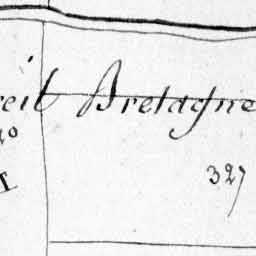 reil Bretagne
40
327